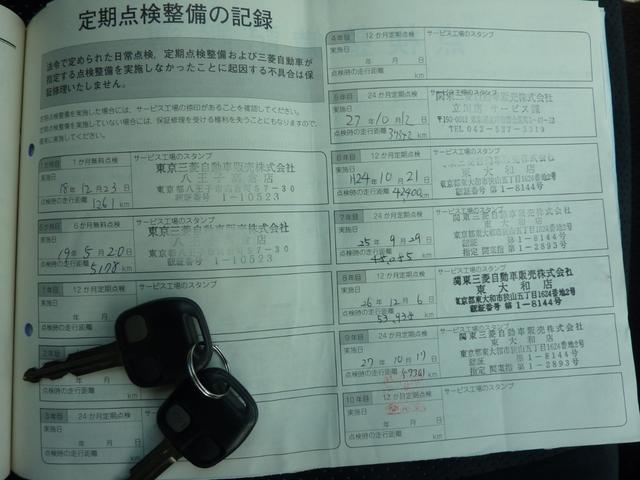 定期点検整備の記録
法令で定められた日常点検、定期点検整備および三菱自動車が
指定する点検整備を実施しなかったことに起因する不具合は保
証修理いたしません。
定期点検整備を実施した場合には、サービス工場の捺印があることを確認してください。
定期点検整備を実施していない場合には、保証修理を受ける権利を失うことにもなりますので、
実施してください。
1か月無料点検 サービス工場のスタンプ
実施日
18年12月23日
点検時の走行距離
1261 km
東京三菱自動車販売株式会社
八王子高倉店
東京都八王子市高倉町57-30
認証番号 1-10523
6か月目 6か月無料点検 サービス工場のスタンプ
実施日
19年5月20日
点検時の走行距離
5178 km
東京三菱自動車販売株式会社
東京都八王子市高倉町57-30
認証番号 1-10523
1年目 12か月定期点検 サービス工場のスタンプ
実施日
年 月 日
点検時の走行距離
2年目
点検時の走行距離
3年目 24か月定期点検 サービス工場のスタンプ
実施日
年 月
点検時の走行距離
4年目 12か月定期点検 サービス工場のスタンプ
実施日
年 月 日
点検時の走行距離 km
5年目 24か月定期点検 サービス工場のスタンプ
実施日
点検時の走行距離 km
関東三菱自動車販売株式会社
立川店 サービス課
TEL 042-527-3319
6年目 12か月定期点検 サービス工場のスタンプ
実施日
H24年10月21日
点検時の走行距離
42400 km
関東三菱自動車販売株式会社
東大和店
東京都東大和市狭山五丁目1624番地2号
認証番号 第1-8144号
7年目 24か月定期点検 サービス工場のスタンプ
実施日
25年9月29日
点検時の走行距離 km
関東三菱自動車販売株式会社
東大和店
東京都東大和市狭山五丁目1624番地2号
認証 第1-8144号
指定 関東指 第1-2893号
8年目 12か月定期点検 サービス工場のスタンプ
実施日
26年12月6日
点検時の走行距離 km
関東三菱自動車販売株式会社
東大和店
東京都東大和市狭山五丁目1624番地2号
認証番号 第1-8144号
9年目 24か月定期点検 サービス工場のスタンプ
実施日
27年10月17日
点検時の走行距離
57361 km
関東三菱自動車販売株式会社
東大和店
東京都東大和市狭山五丁目1624番地2号
認証 第1-8144号
指定 関東指 第1-2893号
10年目 12か月定期点検 サービス工場のスタンプ
実施日
年 月 日
点検時の走行距離 km